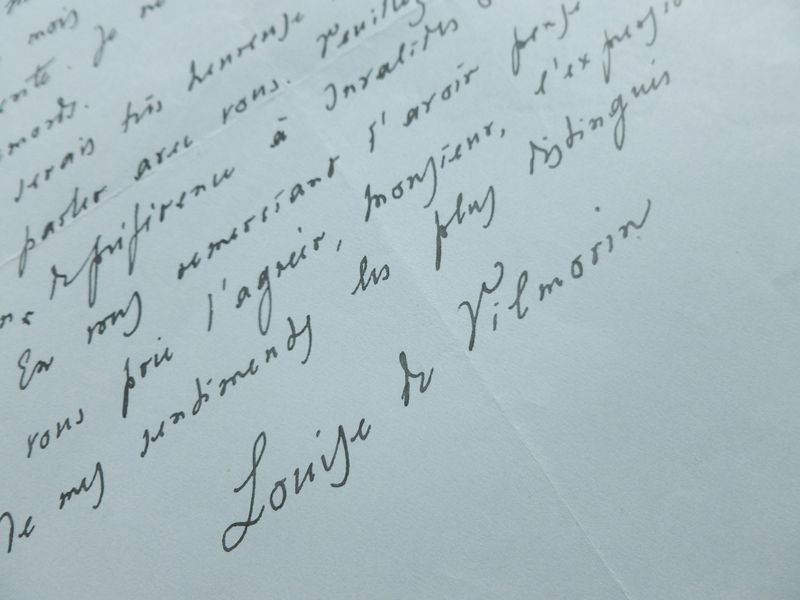 mois
Je ne
serais très heureuse
parler avec vous. Veuillez
de préférence à Invalides
En vous remerciant d'avoir pensé
vous prie l'agréer, monsieur, l'expressio
de mes sentiments les plus distingués
Louise de Vilmorin